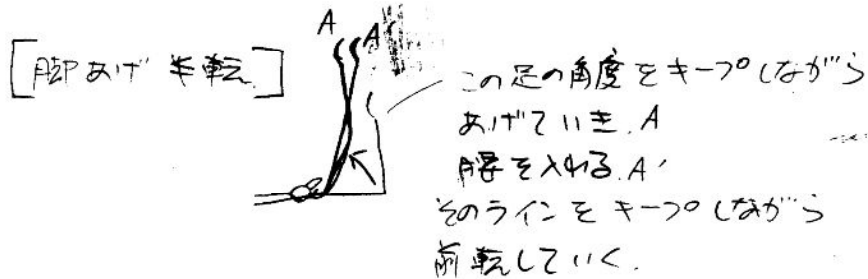 A A'
[脚あげ 半転]
この足の角度をキープしながら
あげていき、A
腰を入れる、A'
そのラインをキープしながら
前転していく。